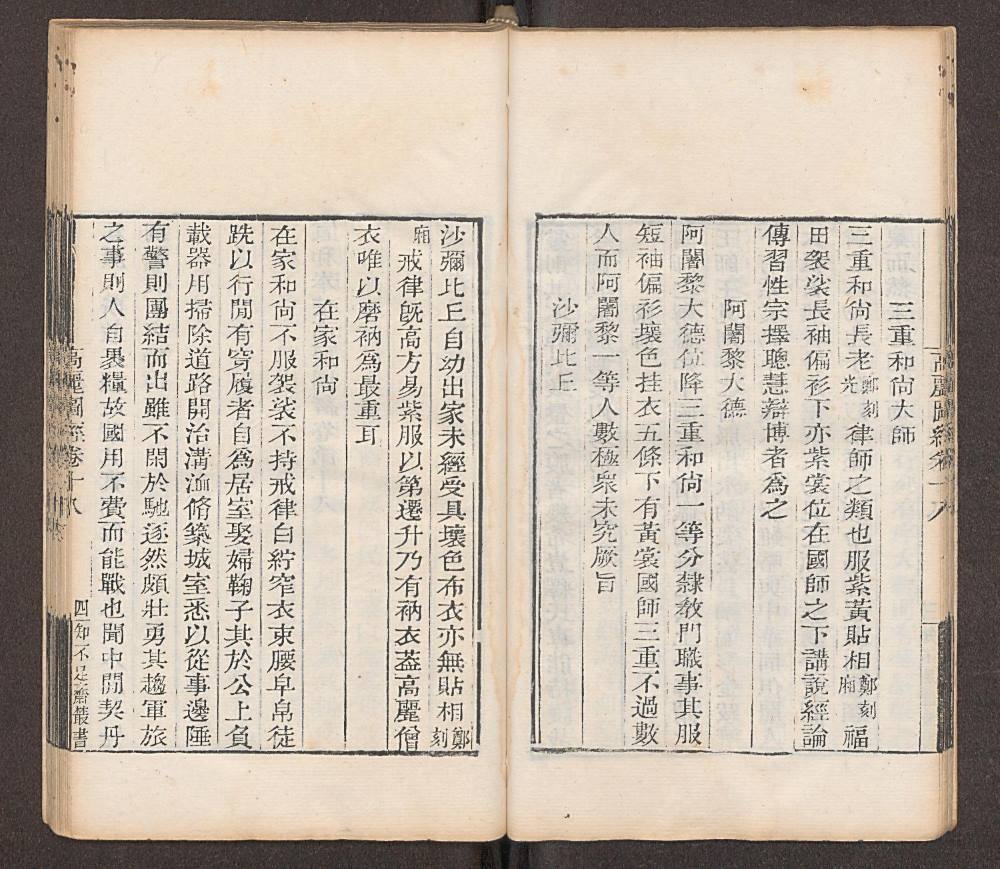 高麗圖經卷十八
三重和尙大師
三重和尙長老鄭刻光律師之類也服紫黃貼相鄭刻廂福
田袈裟長袖偏衫下亦紫裳位在國師之下講說經論
傳習性宗擇聰慧辯博者爲之
阿闍黎大德
阿闍黎大德位降三重和尙一等分隸敎門職事其服
短袖偏衫壞色挂衣五條下有黃裳國師三重不過數
人而阿闍黎一等人數極衆未究厥旨
沙彌比丘
沙彌比丘自幼出家未經受具壞色布衣亦無貼相鄭刻
廂戒律旣高方易紫服以第遷升乃有衲衣葢高麗僧
衣唯以磨衲爲最重耳
在家和尙
在家和尙不服袈裟不持戒律白紵窄衣束腰皁帛徒
跣以行閒有穿履者自爲居室娶婦鞠子其於公上負
載器用掃除道路開治溝洫脩築城室悉以從事邊陲
有警則團結而出雖不閑於馳逐然頗壯勇其趨軍旅
之事則人自褁糧故國用不費而能戰也聞中閒契丹
高麗圖經卷十八
四知不足齋叢書